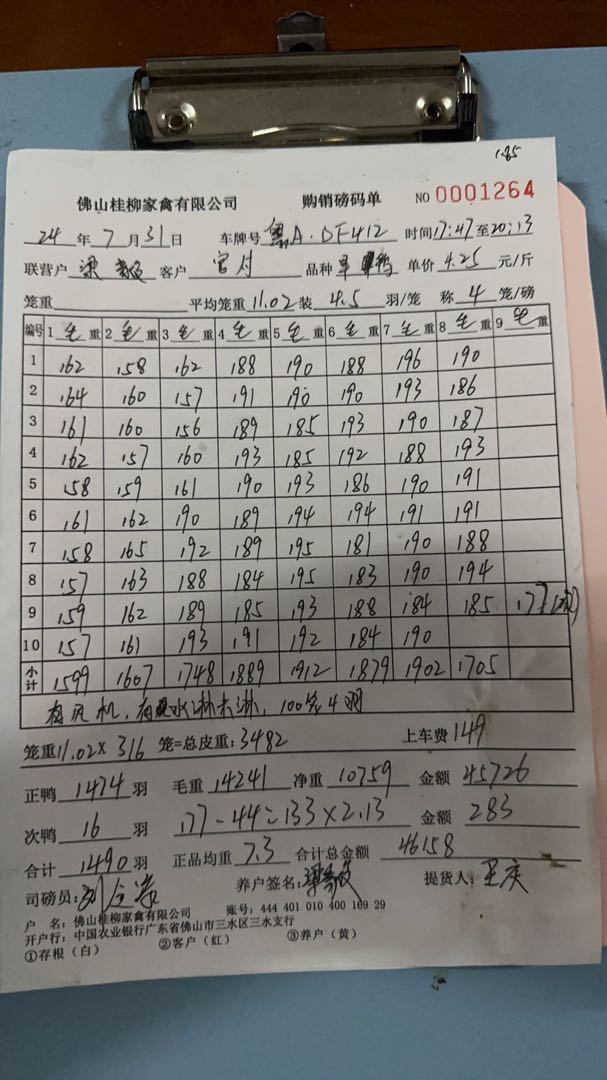 1.85
佛山桂柳家禽有限公司 购销磅码单 NO 0001264
24 年 7 月 31 日 车牌号 粤A·DF412 时间 17:47 至 20:13
联营户 梁毅 客户 品种 单价 4.25 元/斤
笼重 平均笼重 11.02 装 4.5 羽/笼 称 4 笼/磅
编号 1 毛 重 2 毛 重 3 毛 重 4 毛 重 5 毛 重 6 毛 重 7 毛 重 8 毛 重 9 毛 重
1 162 158 162 188 190 188 196 190
2 164 160 157 191 190 190 193 186
3 161 160 156 189 185 193 190 187
4 162 157 160 193 185 192 188 193
5 158 159 161 190 193 186 190 191
6 161 162 190 189 194 194 191 191
7 158 165 192 189 195 181 190 188
8 157 163 188 184 195 183 190 194
9 159 162 189 185 193 188 184 185 177
10 157 161 193 191 192 184 190
小计 1599 1607 1748 1889 1912 1879 1902 1705
有风机，有水淋未淋，100笼4羽
笼重 11.02 × 316 笼=总皮重: 3482 上车费 149
正鸭 1474 羽 毛重 14241 净重 10759 金额 45726
次鸭 16 羽 177-44=133×2.13 金额 283
合计 1490 羽 正品均重 7.3 合计总金额 46158
司磅员: 养户签名: 梁毅 提货人: 王庆
户 名: 佛山桂柳家禽有限公司 账号: 444 401 010 400 169 29
开户行: 中国农业银行广东省佛山市三水区三水支行
①存根（白） ②客户（红） ③养户（黄）